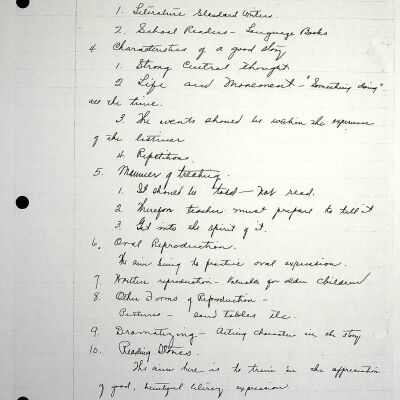 1. Literature Standard Writers.
2. School Readers - Language Books
4 Characteristics of a good story
1. Strong Central Thought
2 Life and Movement - "Something doing"
all the time.
3. The events should be within the experience
of the listener
4. Repetitions.
5. Manner of treating.
1. It should be told - not read.
2 Therefore teacher must prepare to tell it
3. Get into the spirit of it.
6. Oral Reproduction.
The aim being to practice oral expression.
7 Written reproduction - Valuable for older children
8. Other Forms of Reproduction -
Pictures - sand tables etc.
9. Dramatizing - Acting character in the story
10. Reading Stories.
The aim here is to train in the appreciation
of good, beautiful literary expression.